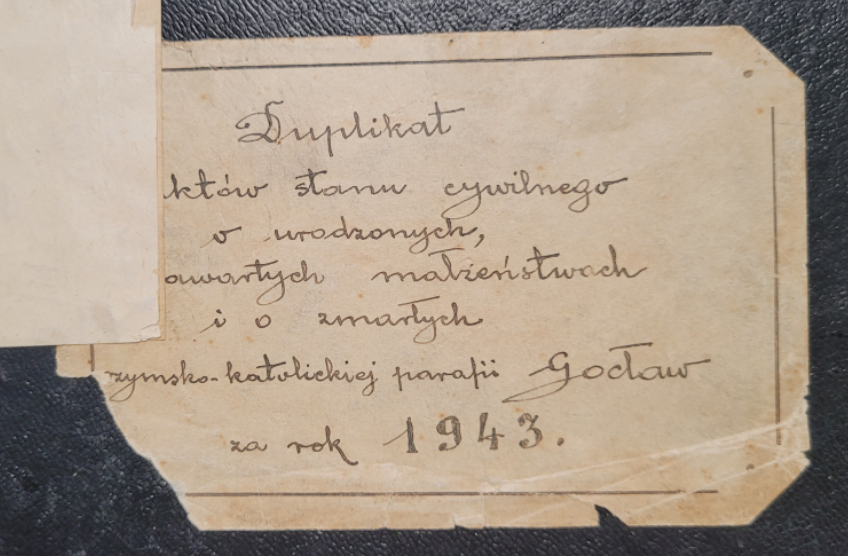 Duplikat
któw stanu cywilnego
o urodzonych,
awartych małżeństwach
i o zmarłych
rzymsko-katolickiej parafii Gocław
za rok 1943.